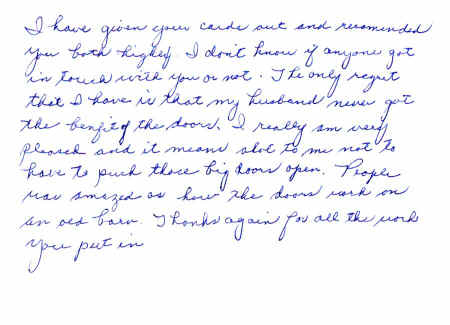 I have given your cards out and recomended
you both highly. I don't know if anyone got
in touch with you or not. The only regret
that I have is that my husband never got
the benefit of the doors. I really am very
pleased and it means alot to me not to
have to push those big doors open. People
are amazed as how the doors work on
an old barn. Thanks again for all the work
you put in